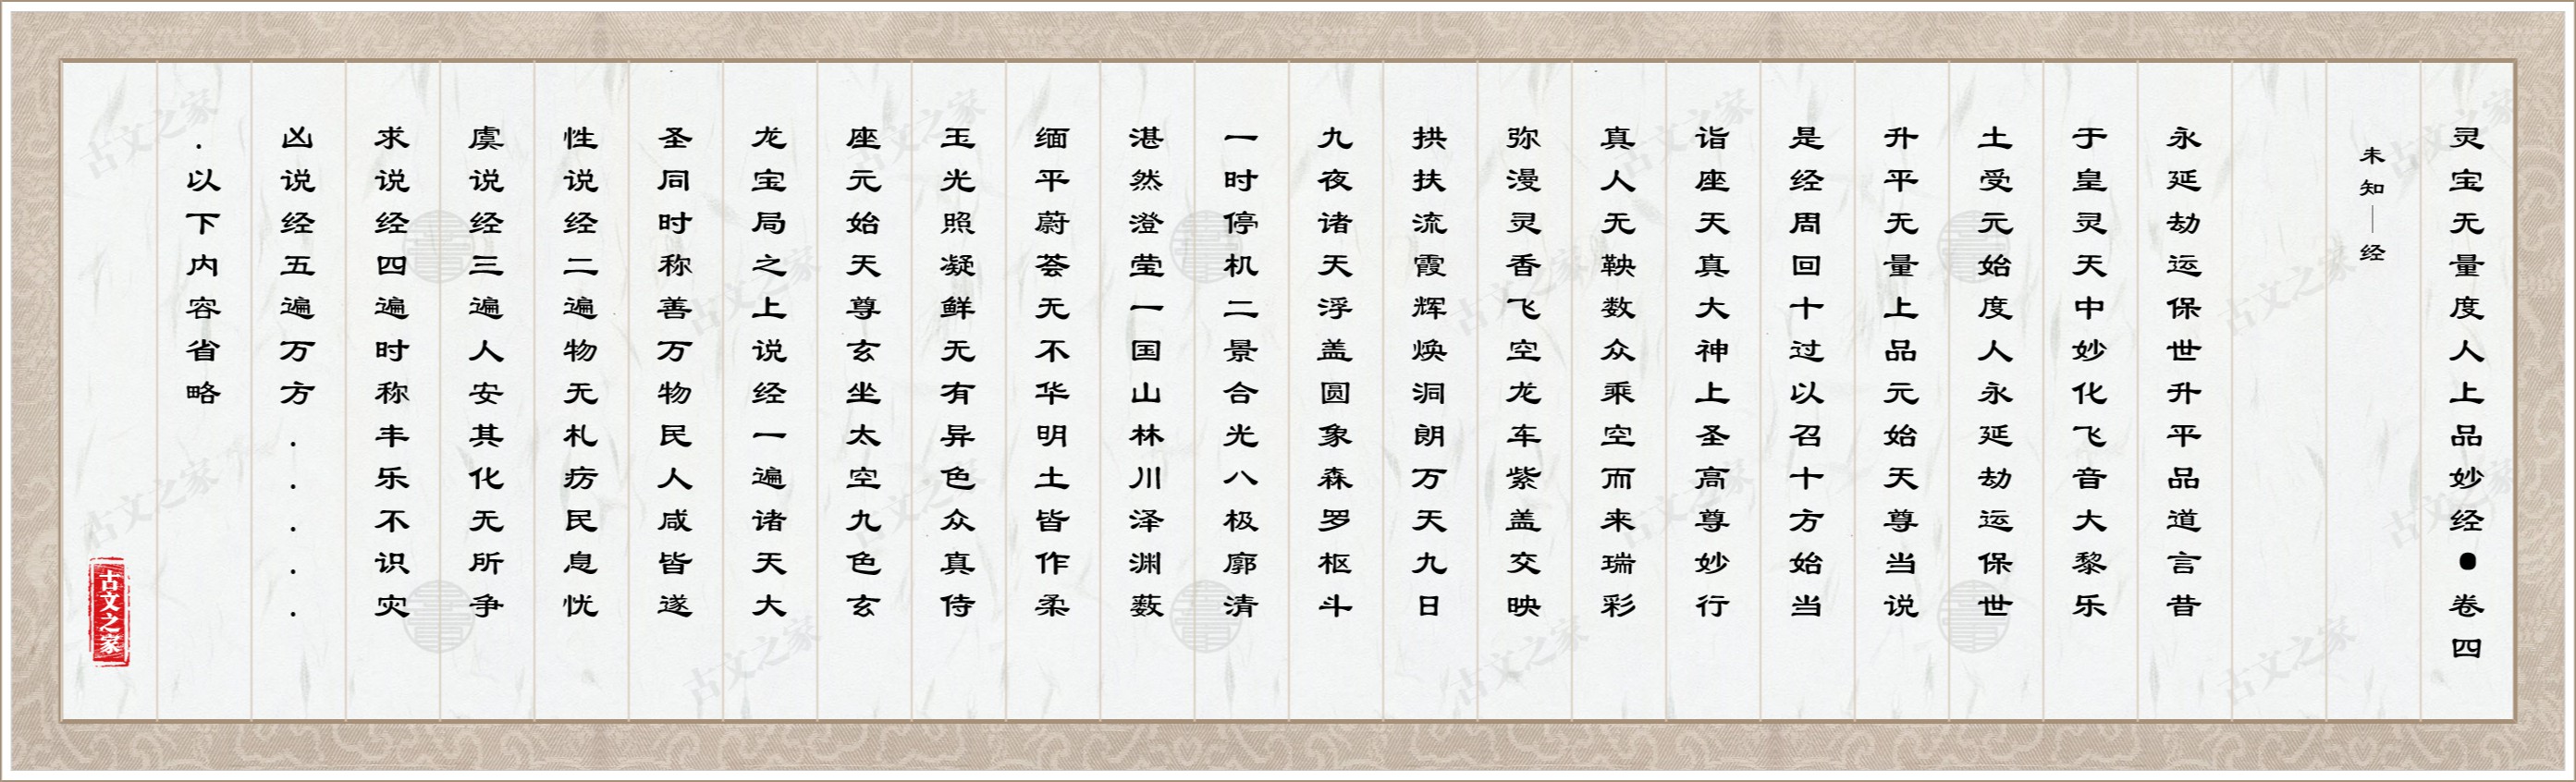 灵宝无量度人上品妙经●卷四
未知—经
永延劫运保世升平品道言昔
于皇灵天中妙化飞音大黎乐
土受元始度人永延劫运保世
升平无量上品元始天尊当说
是经周回十过以召十方始当
诣座天真大神上圣高尊妙行
真人无鞅数众乘空而来瑞彩
弥漫灵香飞空龙车紫盖交映
拱扶流霞辉焕洞朗万天九日
九夜诸天浮盖圆象森罗枢斗
一时停机二景合光八极廓清
湛然澄莹一国山林川泽渊薮
缅平蔚荟无不华明土皆作柔
玉光照凝鲜无有异色众真侍
座元始天尊玄坐太空九色玄
龙宝局之上说经一遍诸天大
圣同时称善万物民人咸皆遂
性说经二遍物无札疠民息忧
虞说经三遍人安其化无所争
求说经四遍时称丰乐不识灾
凶说经五遍万方.....
.以下内容省略
古文之家